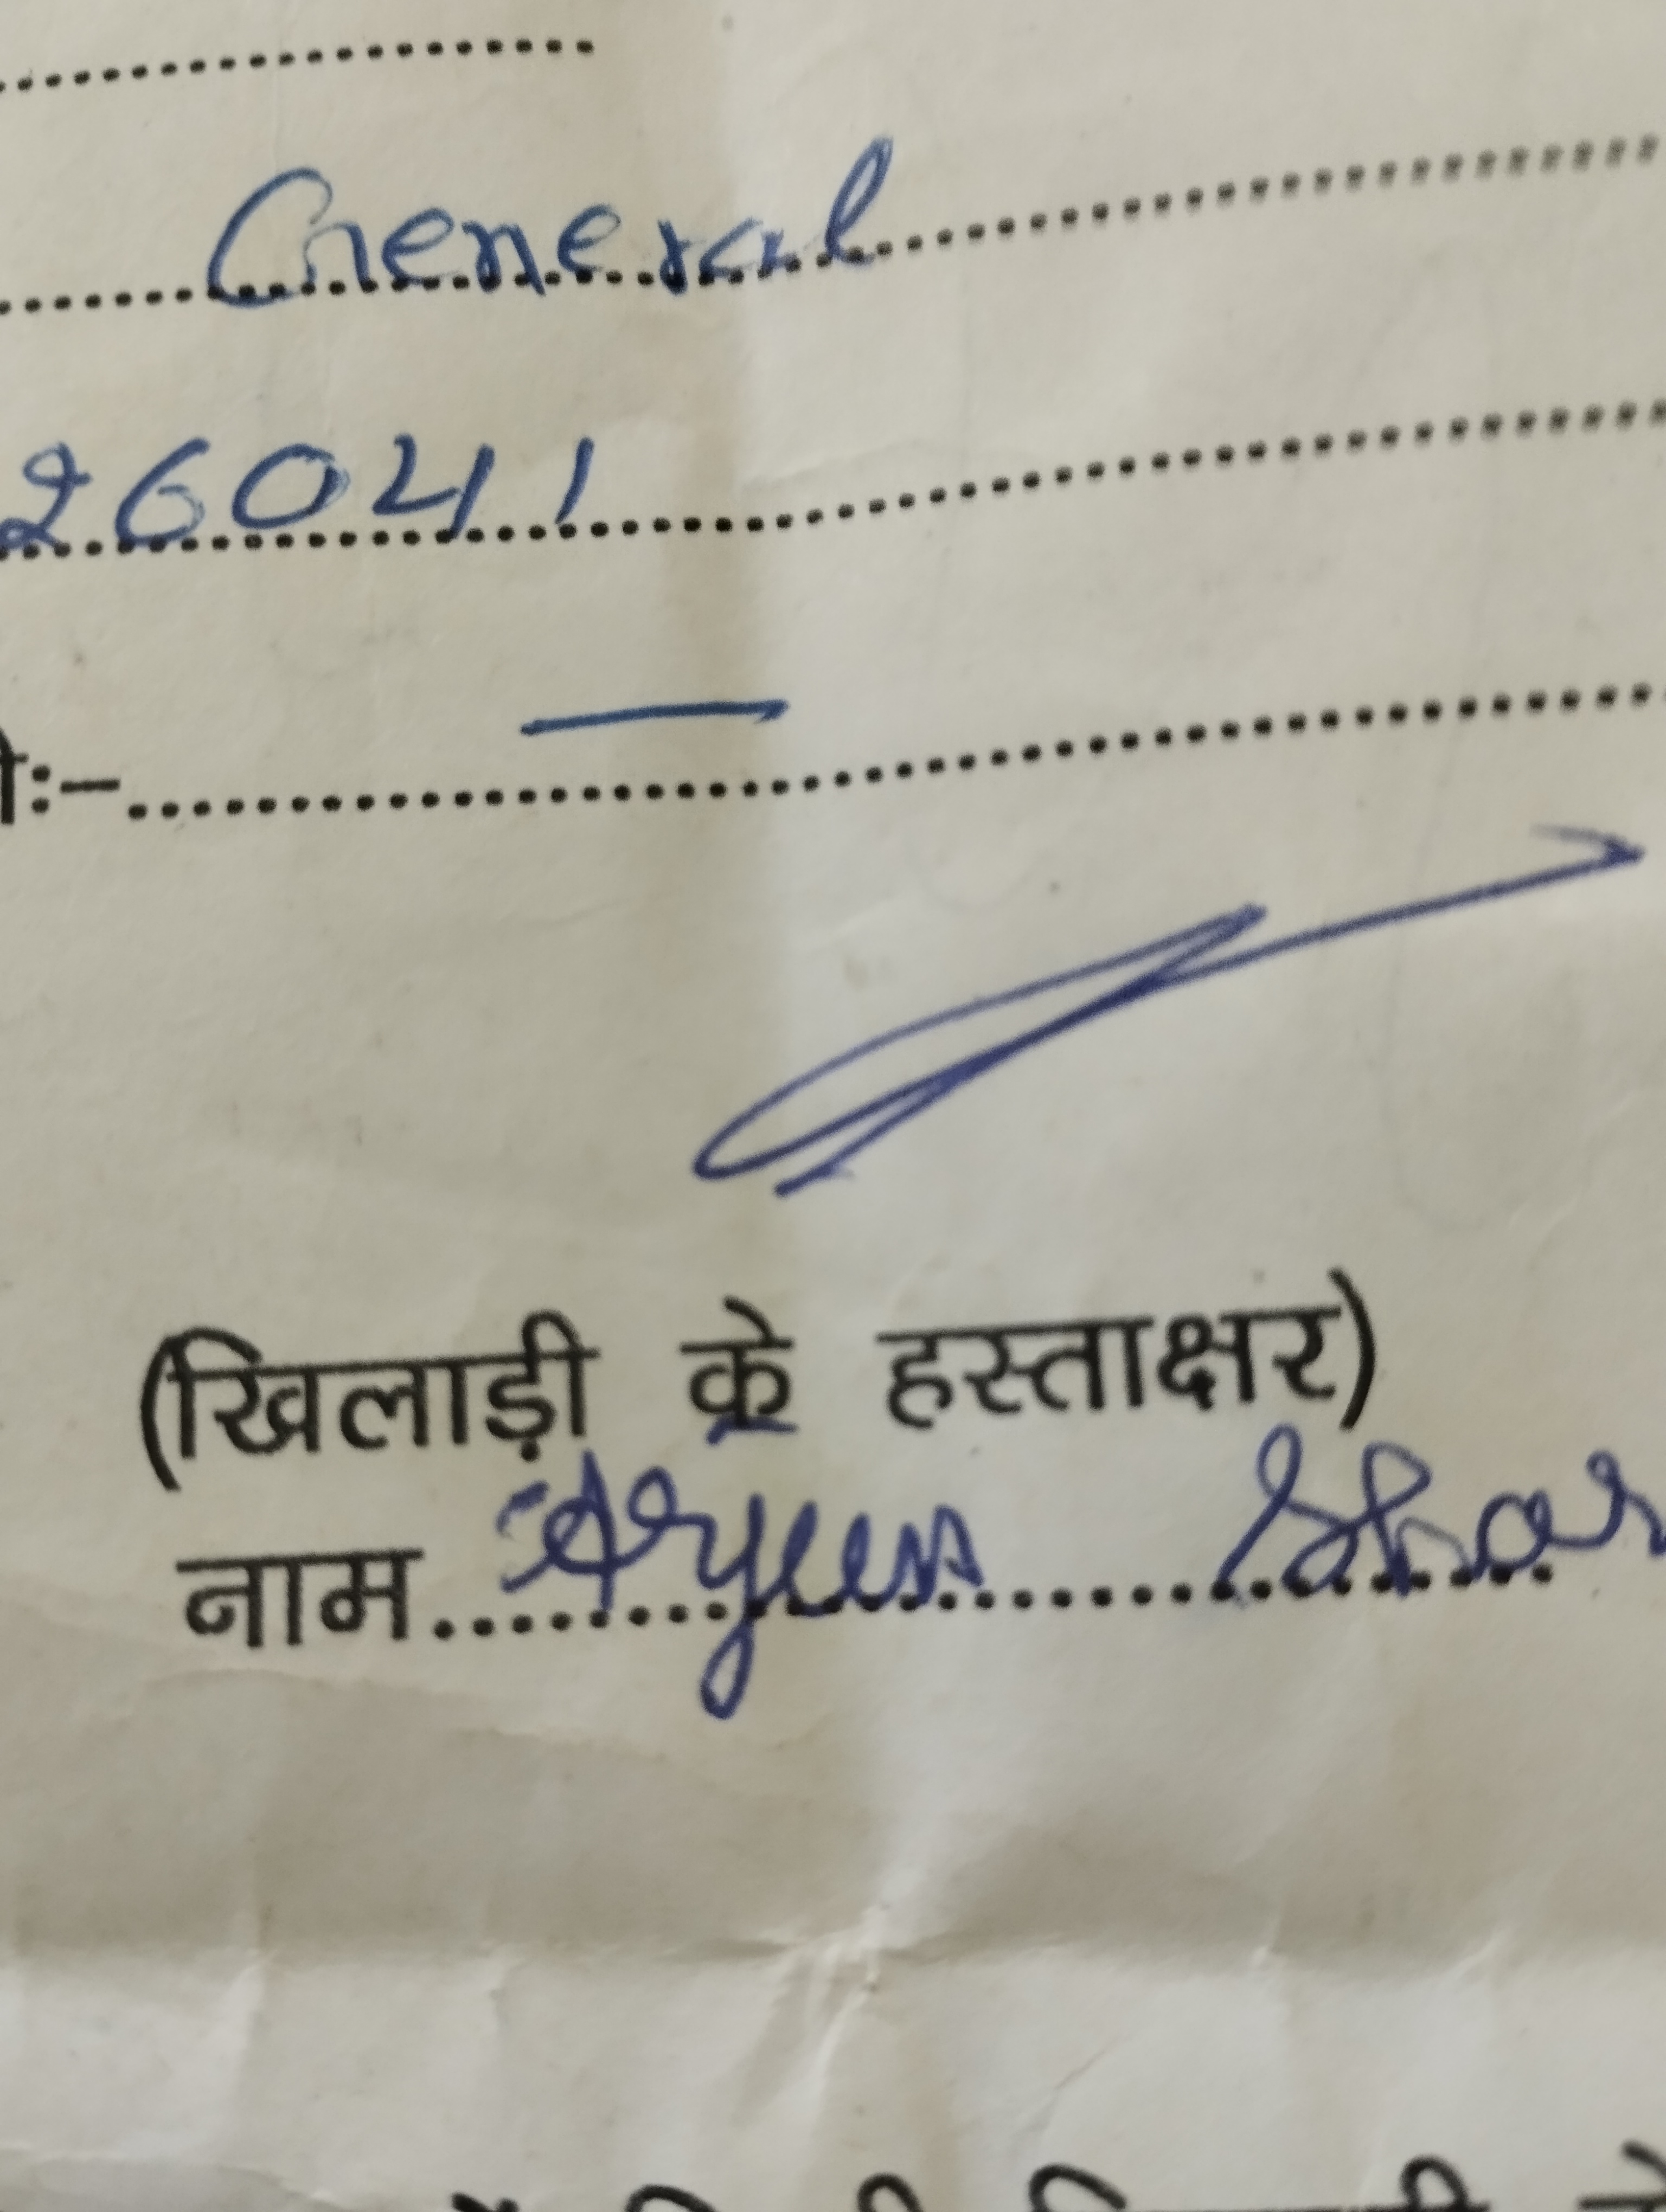 General
26041
ी:–
(खिलाड़ी के हस्ताक्षर)
नाम Aryan Shar